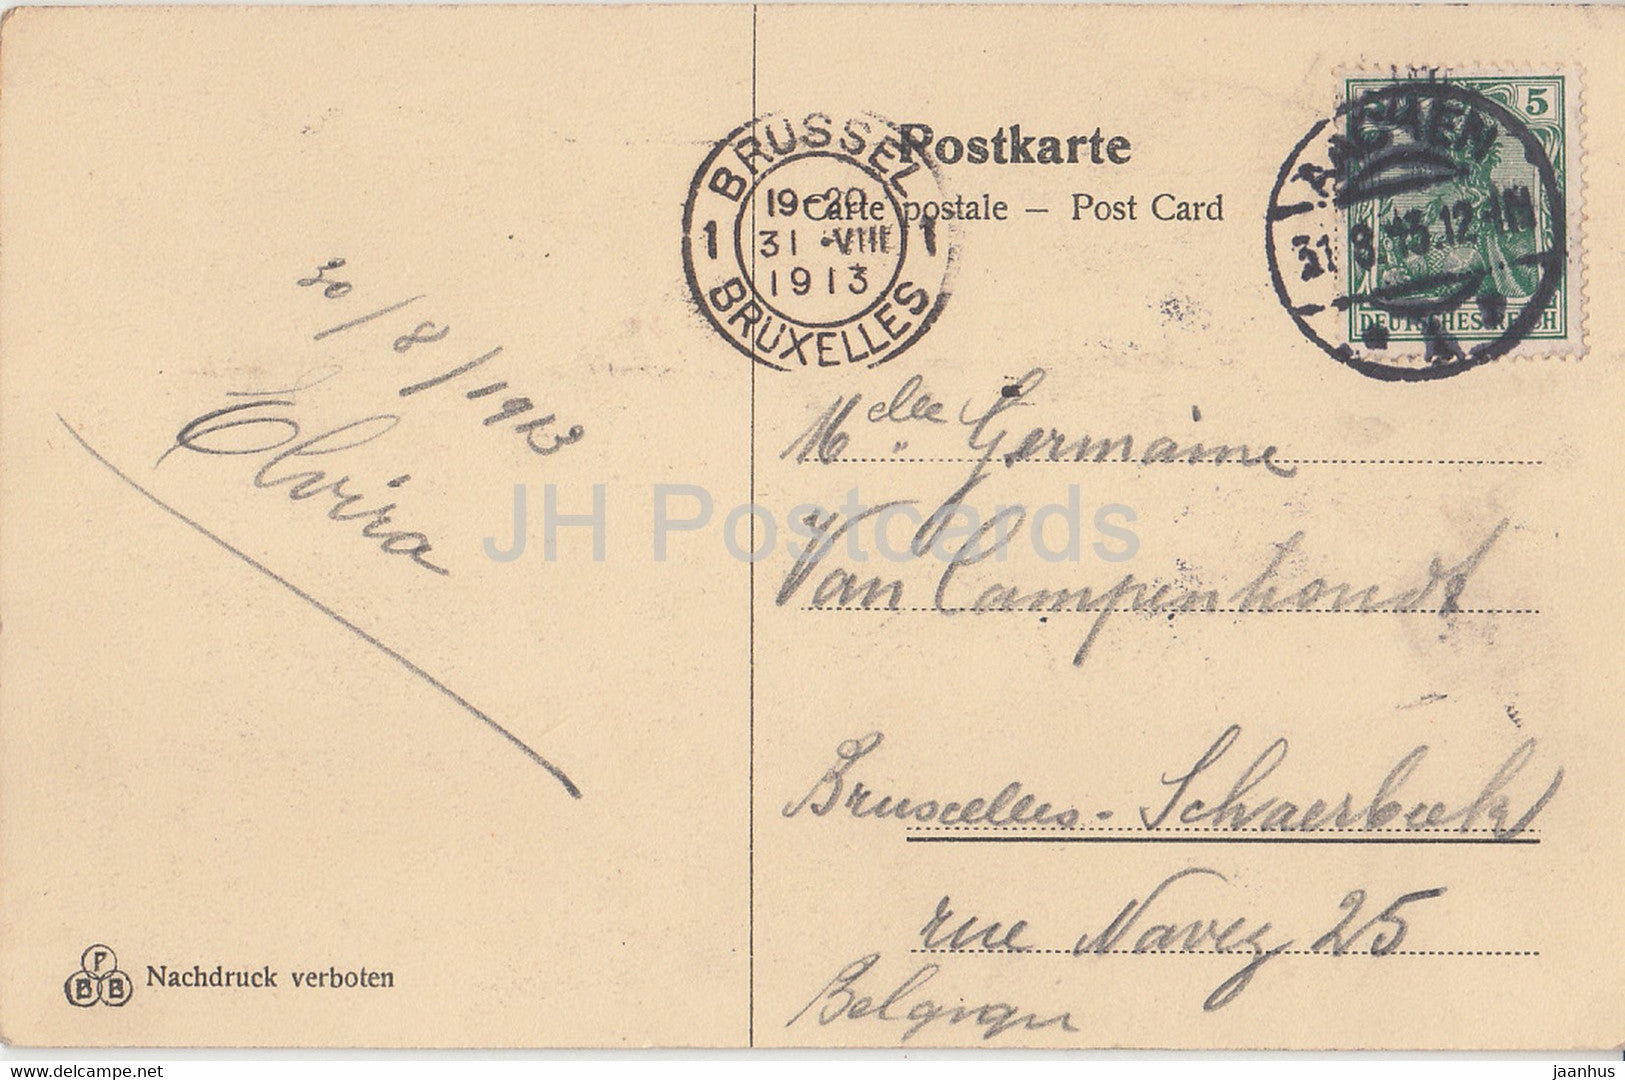 Postkarte
Carte postale – Post Card
BRUSSEL
19-20
31 •VIII
1913
1 1
BRUXELLES
AACHEN
31.8.13.12-1N
* 1 *
5
DEUTSCHES REICH
30/8/1913
Elvira
Mdelle Germaine
Van Campenhoudt
Bruxelles - Schaerbeek
rue Navez 25
Belgique
P
B B
Nachdruck verboten
JH Postcards
delcampe.net
jaanhus